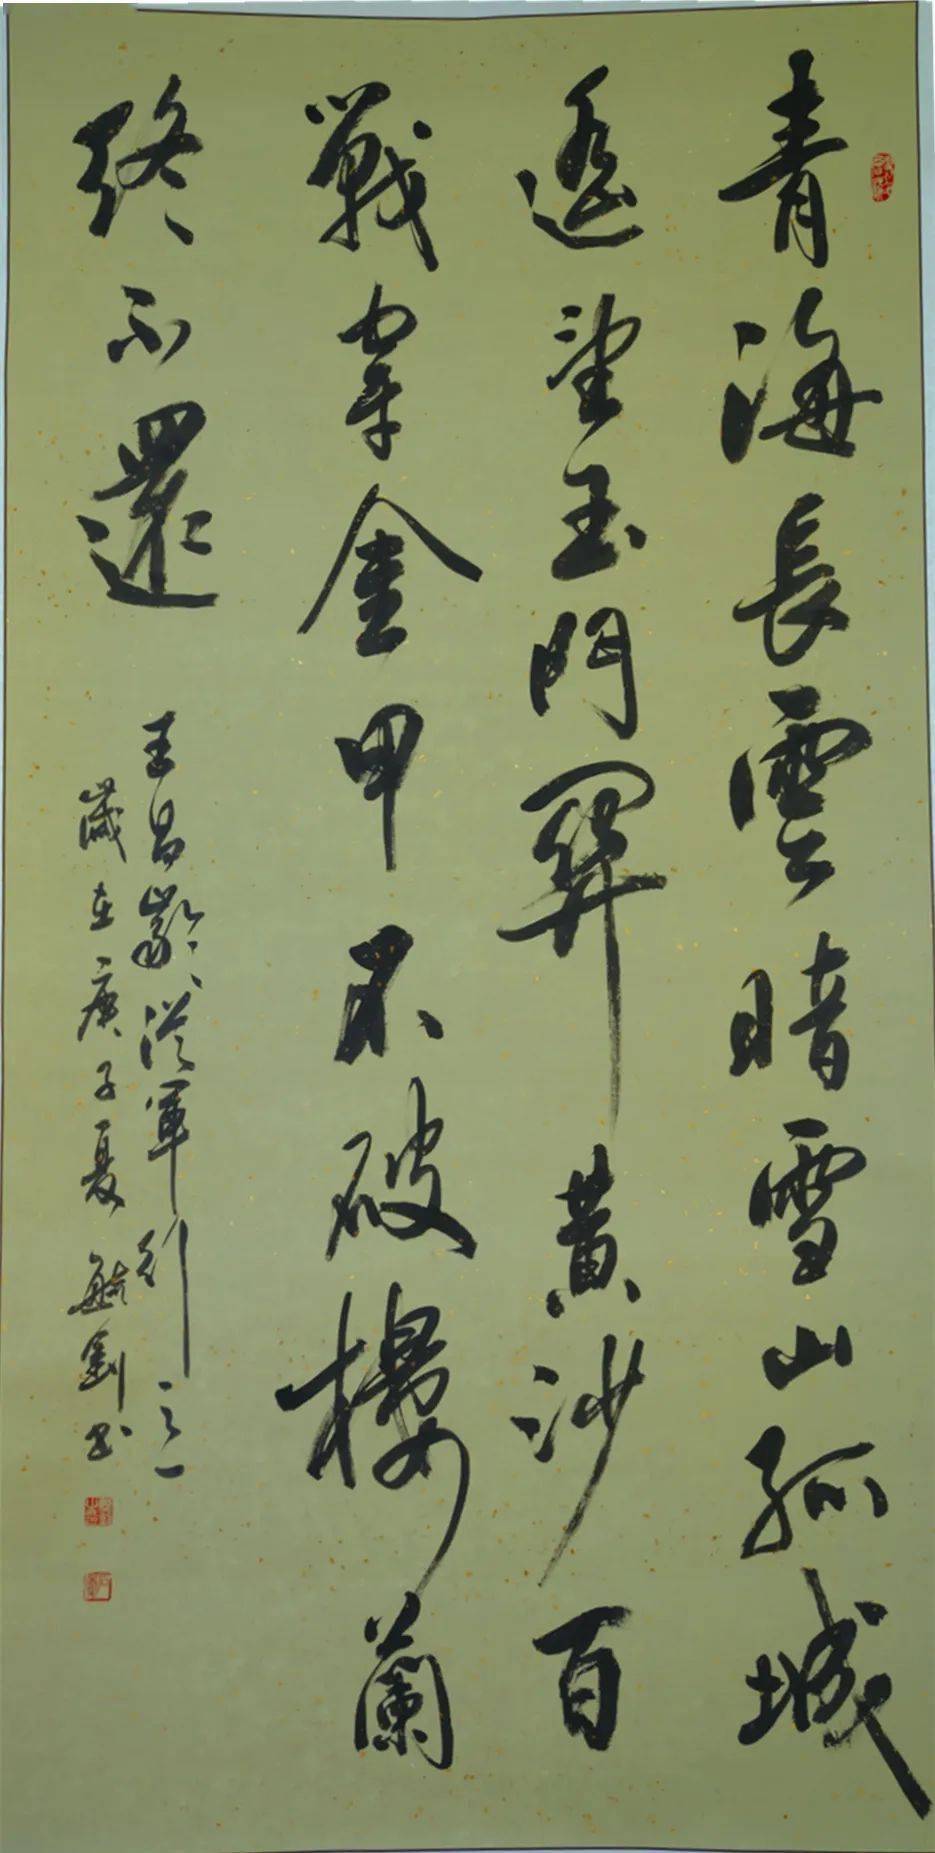 青海長雲暗雪山孤城
遥望玉門關黄沙百
戰穿金甲不破樓蘭
終不還
王昌齡從軍行之一
歲在庚子夏毓書